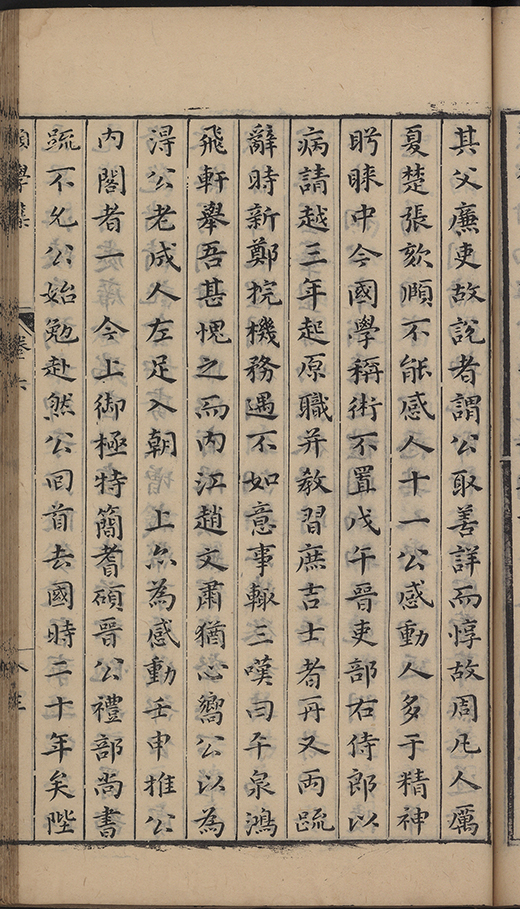 其父廉吏故說者謂公取善詳而惇故周凡人厲
夏楚張欬顧不能感人十一公感動人多于精神
眄睞中今國學稱術不置戊午晉吏部右侍郎以
病請越三年起原職并教習庶吉士者再又両䟽
辭時新鄭捖機務遇不如意事輙三嘆曰平泉鴻
飛軒舉吾甚愧之而内江趙文肅猶心嚮公以為
淂公老成人左足入朝 上尒為感動壬申推公
内閣者一 今上御極特簡耆碩晉公禮部尚書
䟽不允公始勉赴然公回首去國時二十年矣陛
學集 卷六